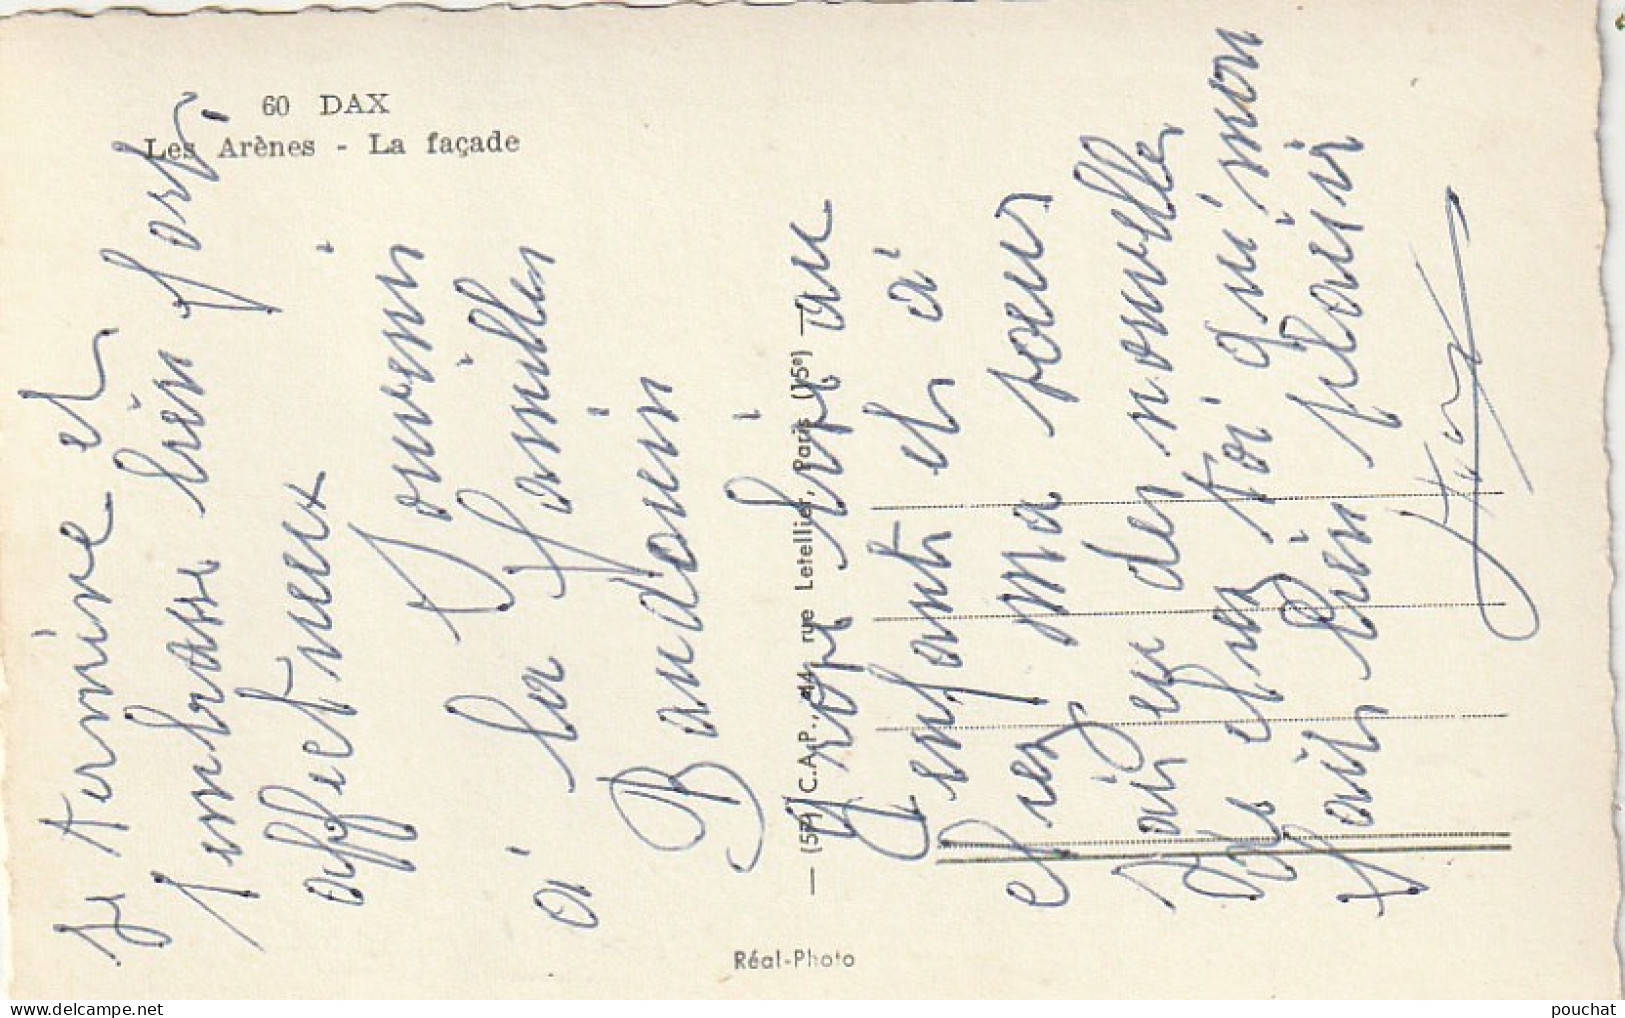 60 DAX
Les Arènes - La façade
Je termine et
t'embrasse bien fort.
affectueux
Souvenir
à la famille
Baudouin
— (57) C.A.P., 44, rue Letellier, Paris (15e) —
Gros bises au
enfants et à
chez ma soeur
j'ai eu des nouvelles
de chez toi qui m'on
fait bien plaisir
Réal-Photo
pouchat